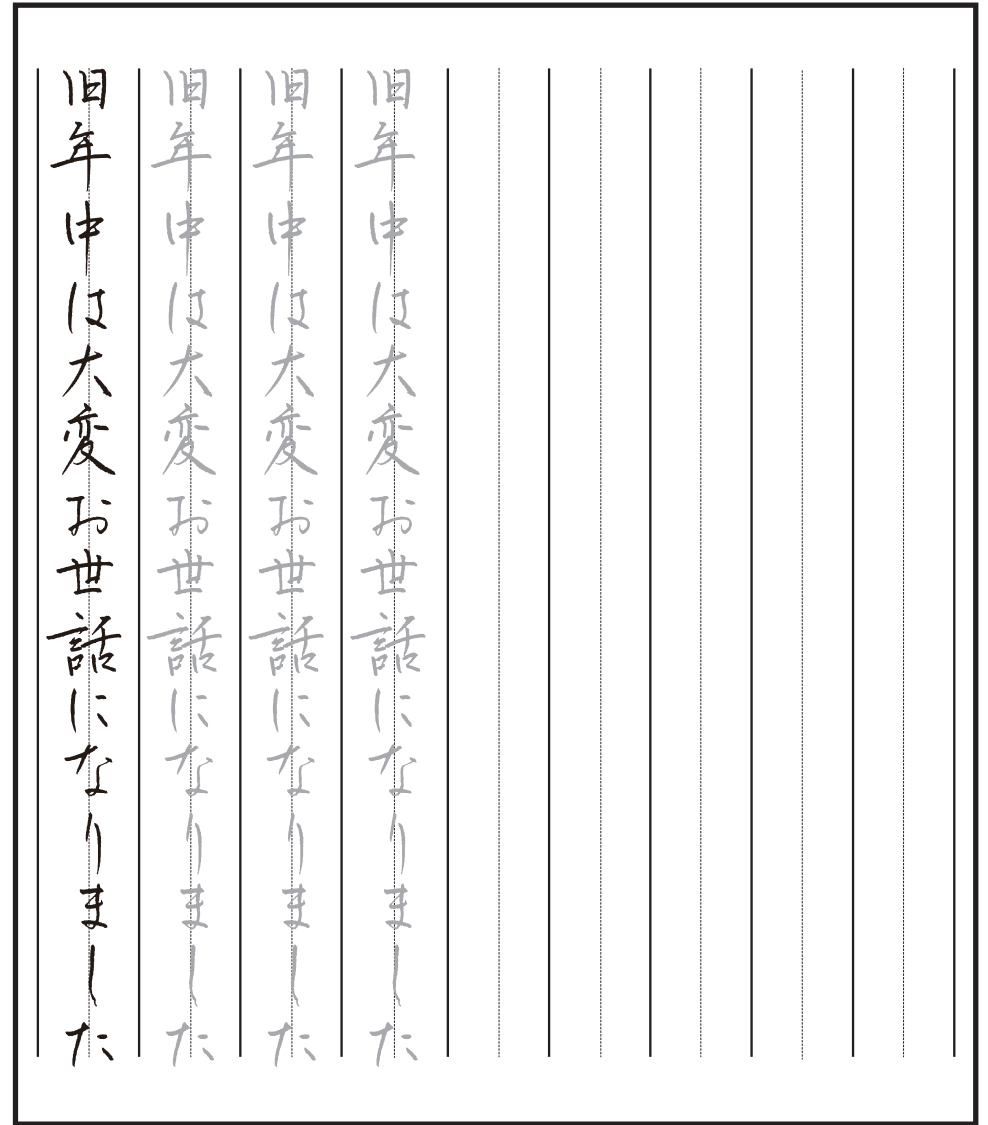 旧年中は大変お世話になりました
旧年中は大変お世話になりました
旧年中は大変お世話になりました
旧年中は大変お世話になりました